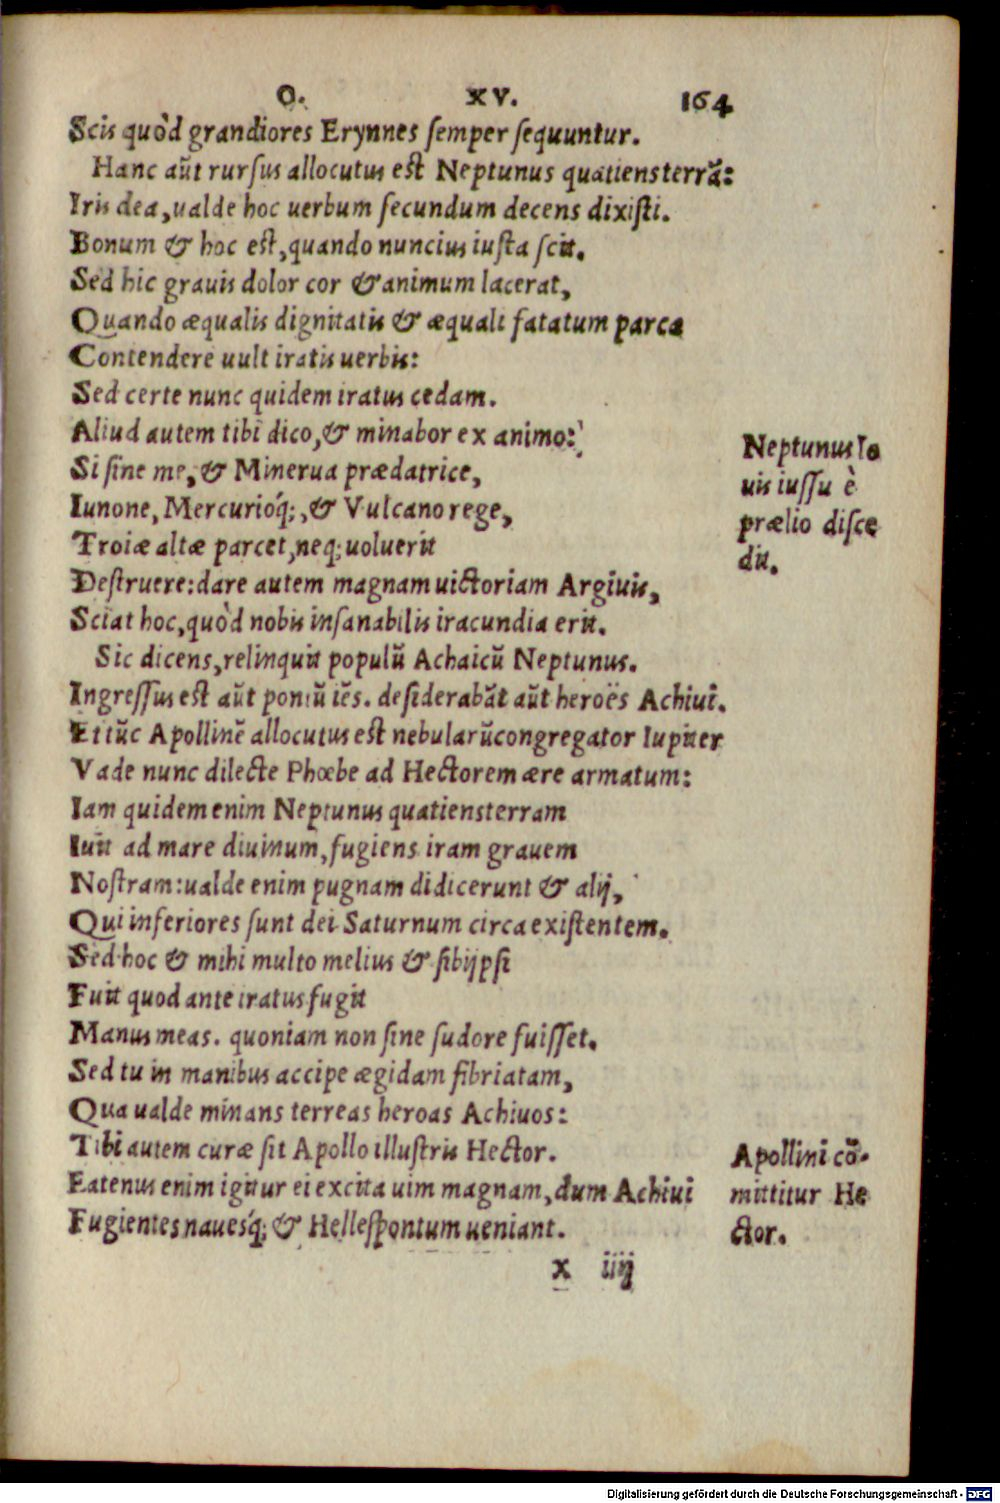 O. XV. 164
Scis quòd grandiores Erynnes semper sequuntur.
Hanc aũt rursus allocutus est Neptunus quatiensterrã:
Iris dea, ualde hoc uerbum secundum decens dixisti.
Bonum & hoc est, quando nuncius iusta scit.
Sed hic grauis dolor cor & animum lacerat,
Quando æqualis dignitatis & æquali fatatum parca
Contendere uult iratis uerbis:
Sed certe nunc quidem iratus cedam.
Aliud autem tibi dico, & minabor ex animo:
Si sine me, & Minerua prædatrice,
Iunone, Mercurioq́;, & Vulcano rege,
Troiæ altæ parcet, neq; uoluerit
Destruere: dare autem magnam uictoriam Argiuis,
Sciat hoc, quòd nobis insanabilis iracundia erit.
Sic dicens, relinquit populũ Achaicũ Neptunus.
Ingressus est aũt pontũ iẽs. desiderabãt aũt heroës Achiui.
Et tũc Apollinẽ allocutus est nebularũcongregator Iupiter
Vade nunc dilecte Phœbe ad Hectorem ære armatum:
Iam quidem enim Neptunus quatiensterram
Iuit ad mare diuinum, fugiens iram grauem
Nostram: ualde enim pugnam didicerunt & alij,
Qui inferiores sunt dei Saturnum circa existentem.
Sed hoc & mihi multo melius & sibijpsi
Fuit quod ante iratus fugit
Manus meas. quoniam non sine sudore fuisset.
Sed tu in manibus accipe ægidam fibriatam,
Qua ualde minans terreas heroas Achiuos:
Tibi autem curæ sit Apollo illustris Hector.
Eatenus enim igitur ei excita uim magnam, dum Achiui
Fugientes nauesq́; & Hellespontum ueniant.
x iiij
Neptunus Io
uis iussu è
prælio disce
dit.
Apollini cõ-
mittitur He
ctor.
Digitalisierung gefördert durch die Deutsche Forschungsgemeinschaft - DFG